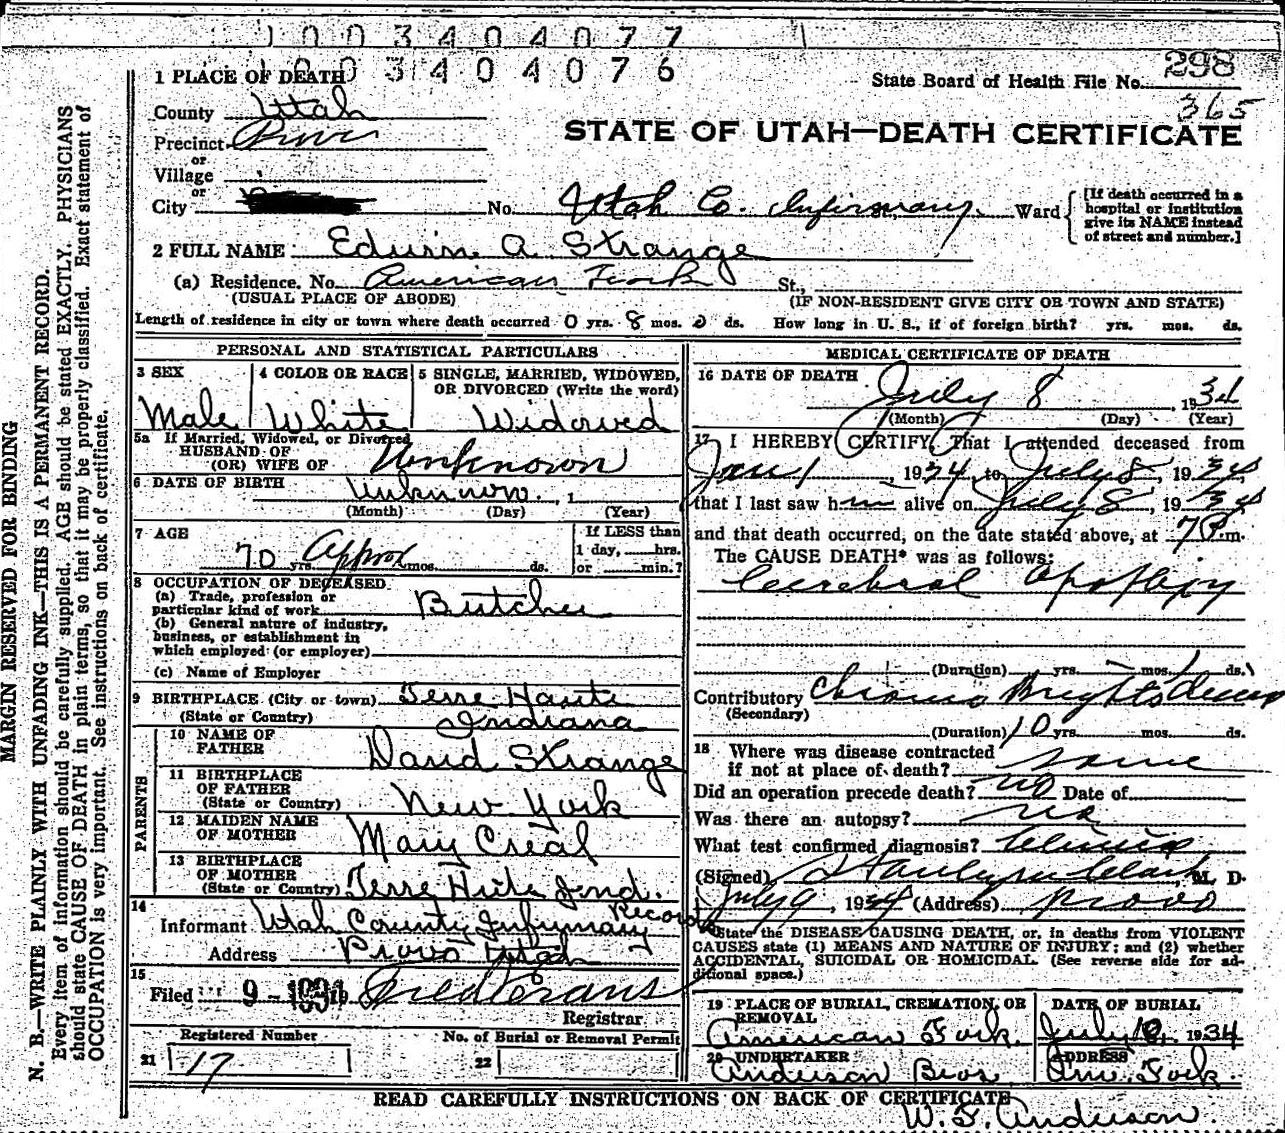 1003404077
1003404076
1 PLACE OF DEATH
State Board of Health File No. 298
365
County Utah
STATE OF UTAH—DEATH CERTIFICATE
Precinct Provo
or
Village
or
City
No. Utah Co. Infirmary. Ward
[If death occurred in a
hospital or institution
give its NAME instead
of street and number.]
2 FULL NAME Edwin A Strange
(a) Residence. No. American Fork St.,
(USUAL PLACE OF ABODE) (IF NON-RESIDENT GIVE CITY OR TOWN AND STATE)
Length of residence in city or town where death occurred 0 yrs. 8 mos. 0 ds. How long in U. S., if of foreign birth? yrs. mos. ds.
PERSONAL AND STATISTICAL PARTICULARS
3 SEX 4 COLOR OR RACE 5 SINGLE, MARRIED, WIDOWED,
OR DIVORCED (Write the word)
Male White Widowed
5a If Married, Widowed, or Divorced
HUSBAND OF
(OR) WIFE OF Unknown
6 DATE OF BIRTH Unknown. , 1
(Month) (Day) (Year)
7 AGE If LESS than
70 yrs. Approx mos. ds. 1 day, hrs.
or min.?
8 OCCUPATION OF DECEASED
(a) Trade, profession or
particular kind of work Butcher
(b) General nature of industry,
business, or establishment in
which employed (or employer)
(c) Name of Employer
9 BIRTHPLACE (City or town) Terre Haute
(State or Country) Indiana
PARENTS
10 NAME OF
FATHER David Strange
11 BIRTHPLACE
OF FATHER
(State or Country) New York
12 MAIDEN NAME
OF MOTHER Mary Creal
13 BIRTHPLACE
OF MOTHER
(State or Country) Terre Hute Ind.
14
Informant Utah County Infirmary Records
Address Provo Utah
15
Filed 9 - 1934 Fred Evans
Registrar
Registered Number No. of Burial or Removal Permit
21 17 22
MEDICAL CERTIFICATE OF DEATH
16 DATE OF DEATH
July 8 , 1934
(Month) (Day) (Year)
17 I HEREBY CERTIFY, That I attended deceased from
Jan 1 1934, to July 8, 1934
that I last saw him alive on July 8, 1934
and that death occurred, on the date stated above, at 7 P.m.
The CAUSE DEATH* was as follows:
Cerebral Apoplexy
(Duration) yrs. mos. 1 ds.
Contributory Chronic Brights Disease
(Secondary)
(Duration) 10 yrs. mos. ds.
18 Where was disease contracted
if not at place of death? same
Did an operation precede death? no Date of
Was there an autopsy? no
What test confirmed diagnosis? Clinical
(Signed) Stanley M Clark, M. D.
July 9, 1934 (Address) Provo
*State the DISEASE CAUSING DEATH, or, in deaths from VIOLENT
CAUSES state (1) MEANS AND NATURE OF INJURY; and (2) whether
ACCIDENTAL, SUICIDAL OR HOMICIDAL. (See reverse side for ad-
ditional space.)
19 PLACE OF BURIAL, CREMATION, OR DATE OF BURIAL
REMOVAL
American Fork. July 10, 1934
20 UNDERTAKER ADDRESS
Anderson Bros. Am. Fork.
READ CAREFULLY INSTRUCTIONS ON BACK OF CERTIFICATE
W. F. Anderson
MARGIN RESERVED FOR BINDING
N. B.—WRITE PLAINLY WITH UNFADING INK—THIS IS A PERMANENT RECORD.
Every item of information should be carefully supplied. AGE should be stated EXACTLY. PHYSICIANS
should state CAUSE OF DEATH in plain terms, so that it may be properly classified. Exact statement of
OCCUPATION is very important. See instructions on back of certificate.